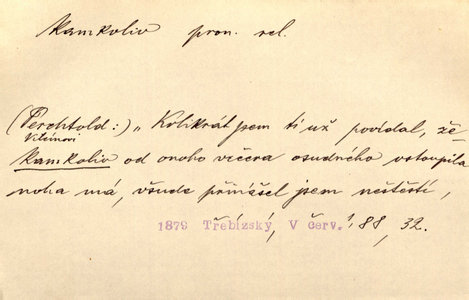 kamkoliv pron. rel.
(Perchtold:) „Kolikrát jsem ti už povídal, že
Vilémovi
kamkoliv od onoho večera osudného vstoupila
noha má, všude přinášel jsem neštěstí,
1879 Třebízský, V červ. 88, 32.